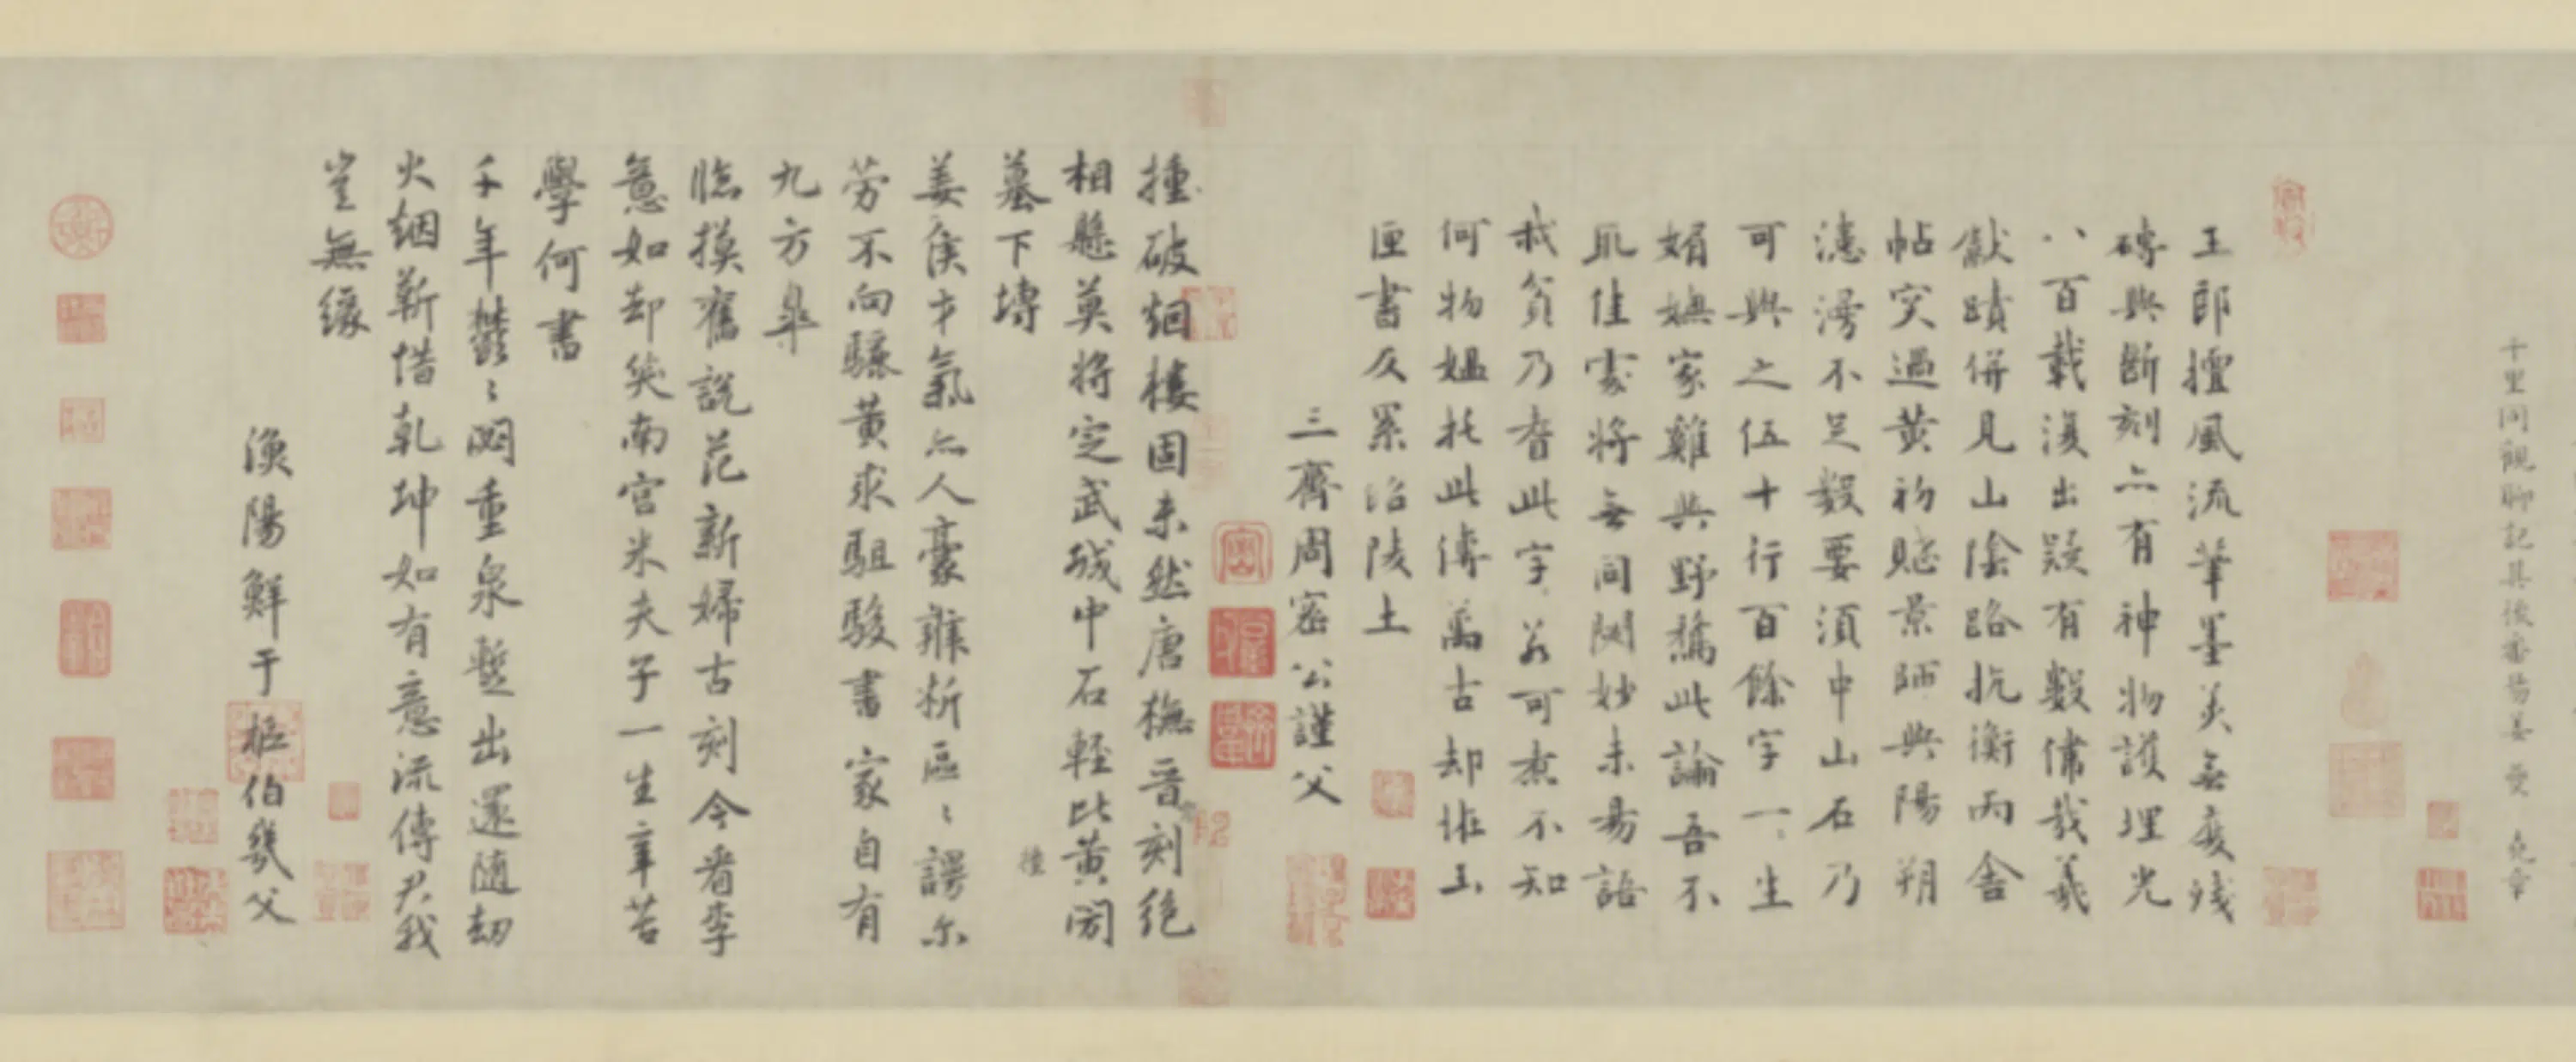 十里同觀聊記其後番昜姜 夔 堯章
王郎擅風流筆墨美無度殘
磚與斷刻亦有神物護埋光
八百載復出疑有數備哉羲
獻蹟併見山陰路抗衡丙舍
帖突過黃初賦景師與陽朔
漶漫不足數要須中山石乃
可與之伍十行百餘字一一生
媚嫵家雞與野鶩此論吾不
取佳處將無同閟妙未易語
我貧乃有此字若可煮不知
何物媼托此傳萬古却恠玉
匣書反累昭陵土
三齊周密公謹父
捶破烟樓固未然唐橅晉刻絕
相懸莫將定武城中石輕比黃閍
墓下塼
姜侯才氣亦人豪辨析區〻謾尔
勞不向驪黃求駔駿書家自有
九方皋
臨摸舊說范新婦古刻今看李
意如却笑南宮米夫子一生辛苦
學何書
千年鬱〻閟重泉暫出還隨劫
火烟靳惜乾坤如有意流傳君我
豈無緣
漁陽鮮于樞伯幾父